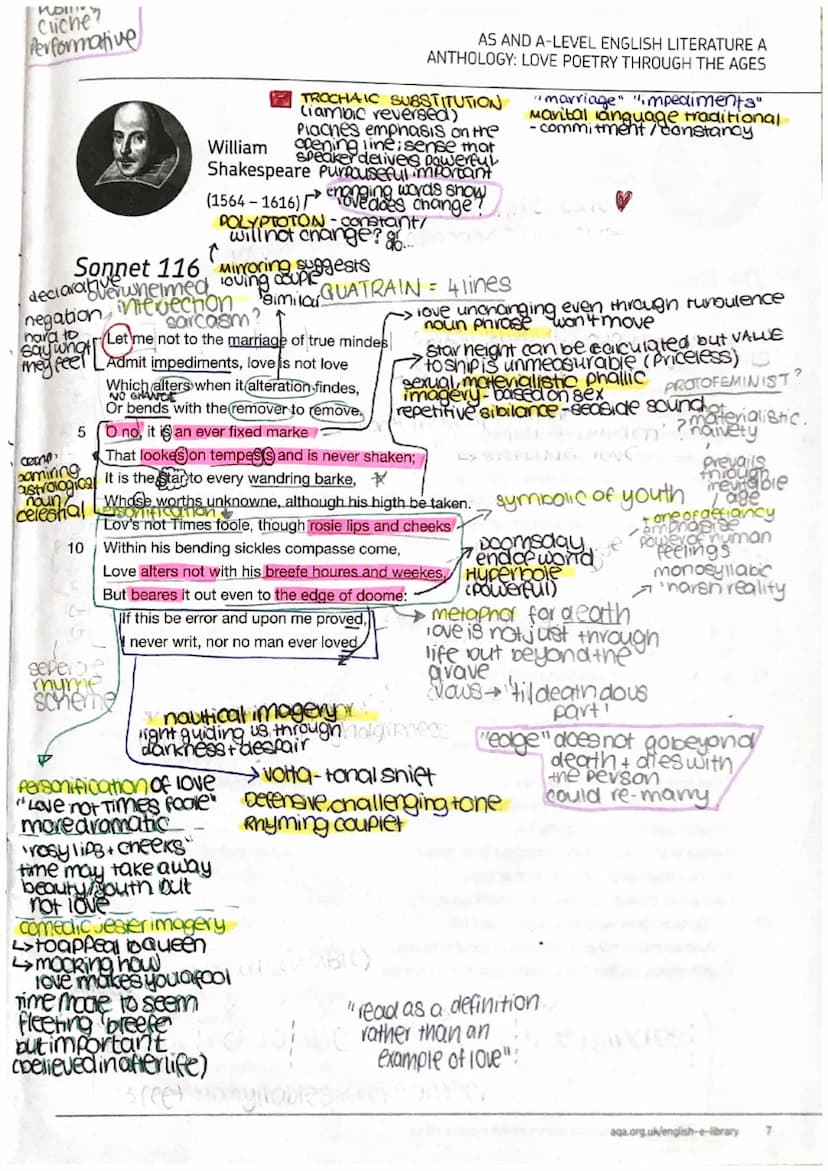 cliche
Performative
AS AND A-LEVEL ENGLISH LITERATURE A
ANTHOLOGY: LOVE POETRY THROUGH THE AGES
TROCHAIC SUBSTITUTION
(iambic reversed)
Places emphasis on the
opening line; sense that
speaker delivers powerful
purposeful important
"marriage" "impediments"
Marital language traditional
- commitment / constancy
William
Shakespeare
(1564 – 1616)
changing words show
love does change?
POLYPTOTON - constant/
will not change? or
do...
Mirroring suggests
loving couple
similar
Sonnet 116
declarative
overwhelmed
interjection
sarcasm?
QUATRAIN = 4 lines
negation,
hard to
say what
they feel
love unchanging even through turbulence
noun phrase won't move
star height can be calculated but VALUE
to ship is unmeasurable (priceless)
sexual, materialistic phallic
imagery - based on sex
repetitive sibilance - seaside sound
PROTOFEMINIST?
not
materialistic.
? naivety
Let me not to the marriage of true mindes
Admit impediments, love is not love
Which alters when it alteration findes,
NO CHANGE
Or bends with the remover to remove.
5 O no, it is an ever fixed marke
That lookes on tempests and is never shaken;
It is the star to every wandring barke,
Whose worths unknowne, although his higth be taken.
personification
Lov's not Times foole, though rosie lips and cheeks
10 Within his bending sickles compasse come,
Love alters not with his breefe houres and weekes,
But beares it out even to the edge of doome:
If this be error and upon me proved,
I never writ, nor no man ever loved.
astrological
noun/
celestial
symbolic of youth
prevails
through
inevitable
age
tone of defiancy
emphasise
power of human
feelings
monosyllabic
'harsh reality
Doomsday
end of world
Hyperbole
(powerful)
metaphor for death
love is not just through
life but beyond the
grave
vows → 'til death do us
part'
seperate
rhyme
scheme
nautical imagery
light guiding us through
darkness + despair
volta - tonal shift
Defensive, challenging tone
Rhyming couplet
"edge" does not go beyond
death + dies with
the person
could re-marry
Personification of love
"Love not Times foole"
more dramatic
'rosy lips + cheeks"
time may take away
beauty/youth but
not love
comedic jester imagery
↳ to appeal to queen
↳ mocking how
love makes you a fool
Time made to seem
fleeting 'breefe'
but important
(believed in afterlife)
"read as a definition
rather than an
example of love":
aqa.org.uk/english-e-library 7